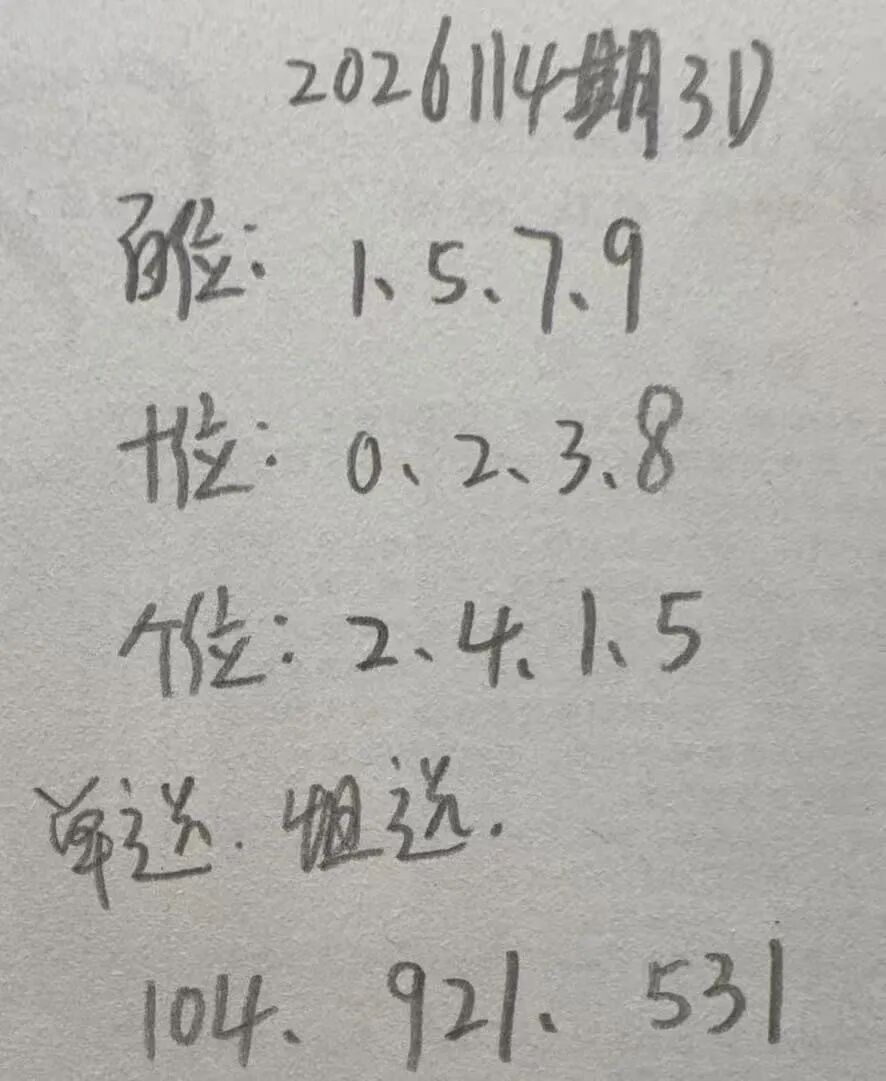 2026114期3D
百位：1、5、7、9
十位：0、2、3、8
个位：2、4、1、5
单选.组选.
104、921、531